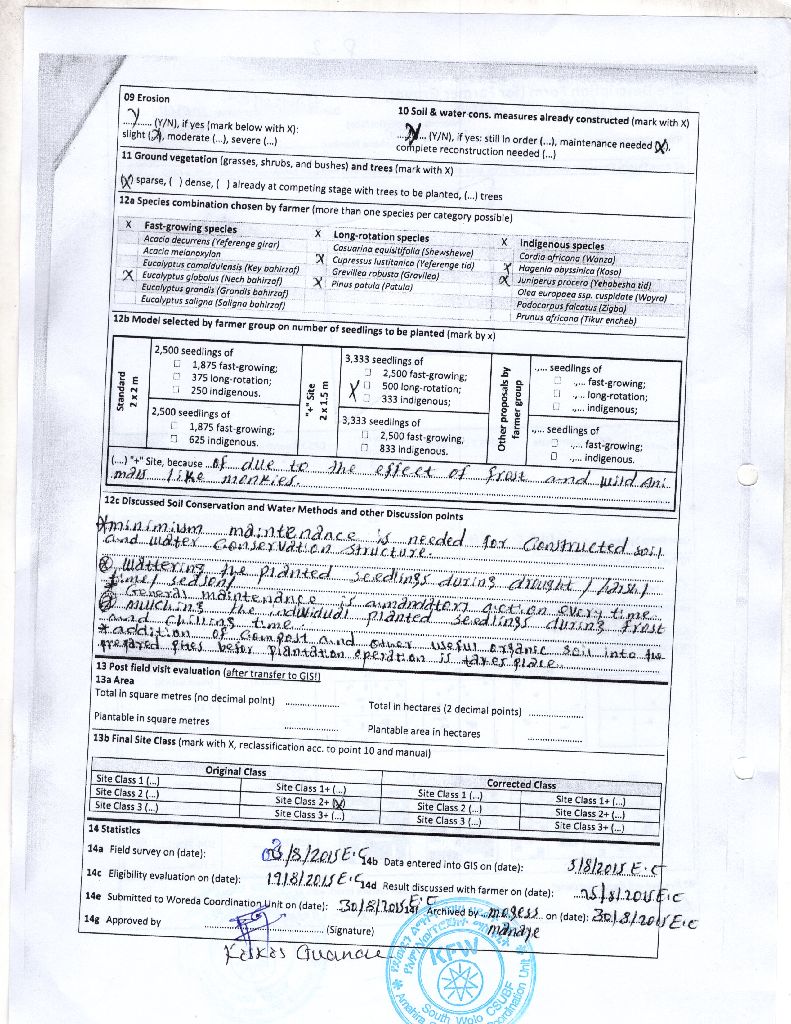 09 Erosion
Y (Y/N), if yes (mark below with X):
slight (X), moderate (...), severe (...)
10 Soil & water cons. measures already constructed (mark with X)
N (Y/N), if yes: still in order (...), maintenance needed (X),
complete reconstruction needed (...)
11 Ground vegetation (grasses, shrubs, and bushes) and trees (mark with X)
(X) sparse, ( ) dense, ( ) already at competing stage with trees to be planted, (...) trees
12a Species combination chosen by farmer (more than one species per category possible)
X Fast-growing species
Acacia decurrens (Yeferenge girar)
Acacia melanoxylon
Eucalyptus camaldulensis (Key bahirzaf)
X Eucalyptus globolus (Nech bahirzaf)
Eucalyptus grandis (Grandis bahirzaf)
Eucalyptus saligna (Saligna bahirzaf)
X Long-rotation species
Casuarina equisitifolia (Shewshewe)
X Cupressus lustitanica (Yeferenge tid)
Grevillea robusta (Gravilea)
X Pinus patula (Patula)
X Indigenous species
Cordia africana (Wanza)
X Hagenia abyssinica (Koso)
X Juniperus procera (Yehabesha tid)
Olea europaea ssp. cuspidate (Wayra)
Podocarpus falcatus (Zigba)
Prunus africana (Tikur encheb)
12b Model selected by farmer group on number of seedlings to be planted (mark by x)
Standard
2 x 2 m
2,500 seedlings of
1,875 fast-growing;
375 long-rotation;
250 indigenous.
2,500 seedlings of
1,875 fast-growing;
625 indigenous.
"+" Site
2 x 1.5 m
3,333 seedlings of
2,500 fast-growing;
X 500 long-rotation;
333 indigenous;
3,333 seedlings of
2,500 fast-growing;
833 indigenous.
Other proposals by
farmer group
.,... seedlings of
.,... fast-growing;
.,... long-rotation;
.,... indigenous;
.,... seedlings of
.,... fast-growing;
.,... indigenous.
(...) "+" Site, because of due to the effect of frost and wild ani
mals like monkies.
12c Discussed Soil Conservation and Water Methods and other Discussion points
minimium maintenance is needed for Constructed soil
and water Conservation structure.
wattering the planted seedlings during drought /
time/ season/
General maintenance is a mandatory action every time
mulching the individual planted seedlings during frost
and chilling time
* addition of Compost and other useful organic soil into the
prepared befor plantation operation is takes place.
13 Post field visit evaluation (after transfer to GIS!)
13a Area
Total in square metres (no decimal point) ..................
Total in hectares (2 decimal points) ..................
Plantable in square metres ..................
Plantable area in hectares ..................
13b Final Site Class (mark with X, reclassification acc. to point 10 and manual)
Original Class Corrected Class
Site Class 1 (...) Site Class 1+ (...) Site Class 1 (...) Site Class 1+ (...)
Site Class 2 (...) Site Class 2+ (X) Site Class 2 (...) Site Class 2+ (...)
Site Class 3 (...) Site Class 3+ (...) Site Class 3 (...) Site Class 3+ (...)
14 Statistics
14a Field survey on (date): 03/8/2015 E.C
14b Data entered into GIS on (date): 5/8/2015 E.C
14c Eligibility evaluation on (date): 19/8/2015 E.C
14d Result discussed with farmer on (date): 25/8/2015 E.C
14e Submitted to Woreda Coordination Unit on (date): 30/8/2015 E.C
14f Archived by mogess on (date): 30/8/2015 E.C
manaye
14g Approved by .................. (Signature)
KFW
South Wolo CSUBF